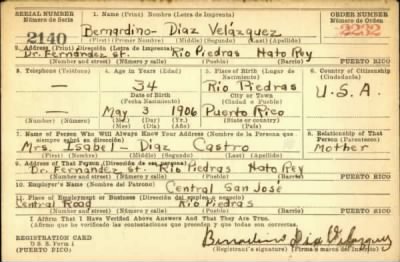 SERIAL NUMBER 1. Name (Print) Nombre (Letra de Imprenta) ORDER NUMBER
Número de Serie Número de Orden
2140 Bernardino- Diaz Velázquez
(First) (Primer Nombre) (Middle) (Segundo) (Last) (Apellido)
2. Address (Print) Dirección (Letra de Imprenta)
Dr. Fernández St. Río Piedras Hato Rey
(Number and street) (Número y calle) (Town) (Pueblo) PUERTO RICO
3. Telephone (Teléfono) 4. Age in Years (Edad) 5. Place of Birth (Lugar de Nacimiento) 6. Country of Citizenship (Ciudadanía)
— 34 Río Piedras
Date of Birth City or Town
(Fecha Nacimiento) (Ciudad o Pueblo) U.S.A.
— May 3 1906 Puerto Rico
(Number) (Número) (Mo.) (Mes) (Day) (Día) (Yr.) (Año) (State or country)
7. Name of Person Who Will Always Know Your Address (Nombre de la Persona que siempre sabrá su dirección) 8. Relationship of That Person (Parentesco)
Mrs. Isabel - Diaz Castro Mother
9. Address of That Person (Dirección de esa persona)
Dr. Fernández St. Río Piedras Hato Rey
(Number and street) (Número y calle) (Town) (Pueblo) PUERTO RICO
10. Employer's Name (Nombre del Patrono)
Central San José
11. Place of Employment or Business (Dirección del empleo o negocio)
Central Road Río Piedras
(Number and street) (Número y calle) (Town) (Pueblo) PUERTO RICO
I Affirm That I Have Verified Above Answers And That They Are True.
(Afirmo que he verificado las contestaciones que preceden y que todas son ciertas)
REGISTRATION CARD
D. S. S. Form 1
(PUERTO RICO)
Bernardino Diaz Velazquez
Registrant's signature (Firma del inscrito)